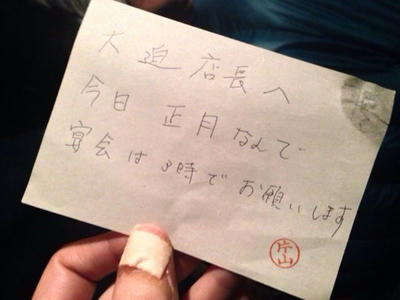 大迫店長へ
今日 正月なんで
宴会は8時でお願いします
片山